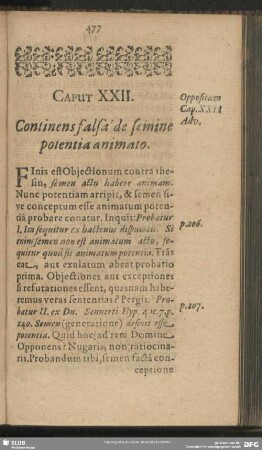 477
CAPUT XXII.
Oppositum
Cap. XXII
Adv.
Continens falsa de semine
potentia animato.
FInis est Objectionum contra the-
sin, semen actu habere animam.
Nunc potentiam arripit, & semen si-
ve conceptum esse animatum poten-
tiâ probare conatur. Inquit: Probatur
p.206.
I. Im sequitur ex hactenus disputatis. Si
enim semen non est animatum actu, se-
quitur quod sit animatum potentia. Trās
eat, aut exulatum abeat probatio
prima. Objectiones aut exceptiones
si refutationes essent, quasnam habe-
remus veras sententias? Pergit. Pro-
p.207.
batur II. ex Dn. Sennerti Hyp. 4. & 7. p.
240. Semen (generatione) desinit esse
potentia. Quid hoc ad rem Domine
Opponens? Nugaris, non ratiocina-
ris. Probandum tibi, semen factâ con-
ceptione
SLUB
DFG